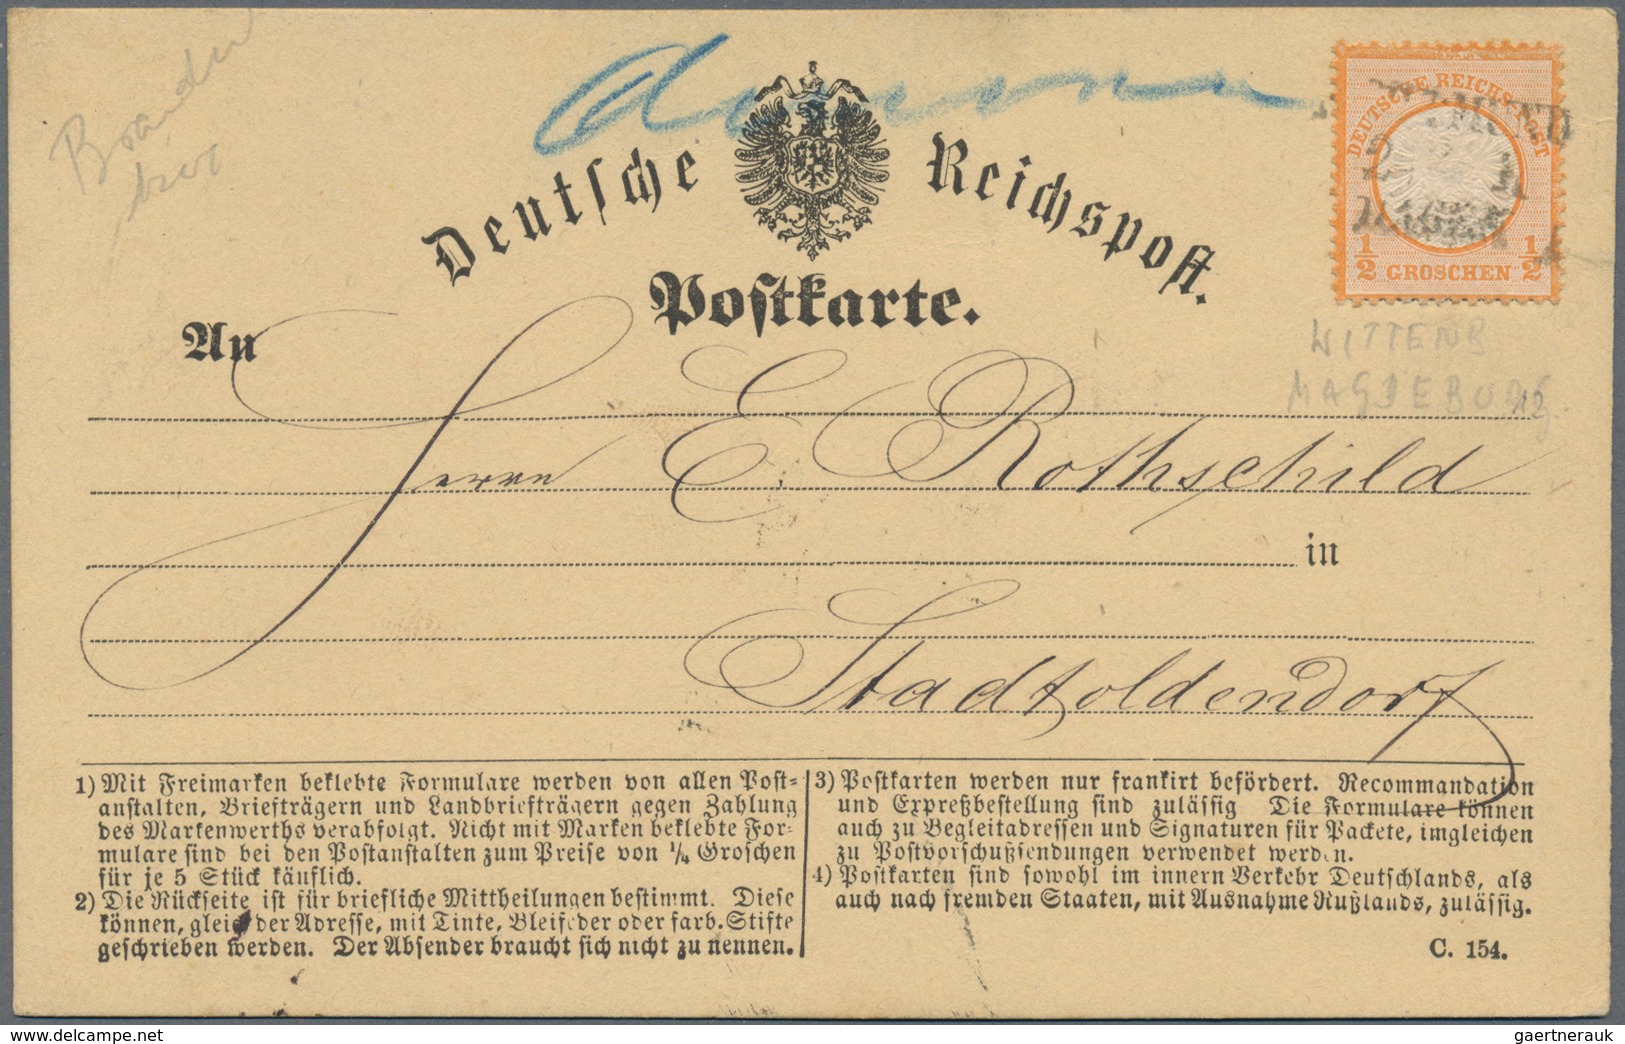 Deutsche Reichspost.
Postkarte.
DEUTSCHE REICHS-POST
½ GROSCHEN ½
WITTENB
MAGDEBURG
An
Herrn E. Rothschild
in
Stadtoldendorf
1) Mit Freimarken beklebte Formulare werden von allen Post-
anstalten, Briefträgern und Landbriefträgern gegen Zahlung
des Markenwerths verabfolgt. Nicht mit Marken beklebte For-
mulare sind bei den Postanstalten zum Preise von ¼ Groschen
für je 5 Stück käuflich.
2) Die Rückseite ist für briefliche Mittheilungen bestimmt. Diese
können, gleich der Adresse, mit Tinte, Bleifeder oder farb. Stifte
geschrieben werden. Der Absender braucht sich nicht zu nennen.
3) Postkarten werden nur frankirt befördert. Recommandation
und Expreßbestellung sind zulässig Die Formulare können
auch zu Begleitadressen und Signaturen für Packete, imgleichen
zu Postvorschußsendungen verwendet werden.
4) Postkarten sind sowohl im innern Verkehr Deutschlands, als
auch nach fremden Staaten, mit Ausnahme Rußlands, zulässig.
C. 154.
gaertnerauk